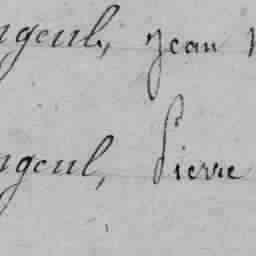 ngeul, Jean
ngeul, Pierre